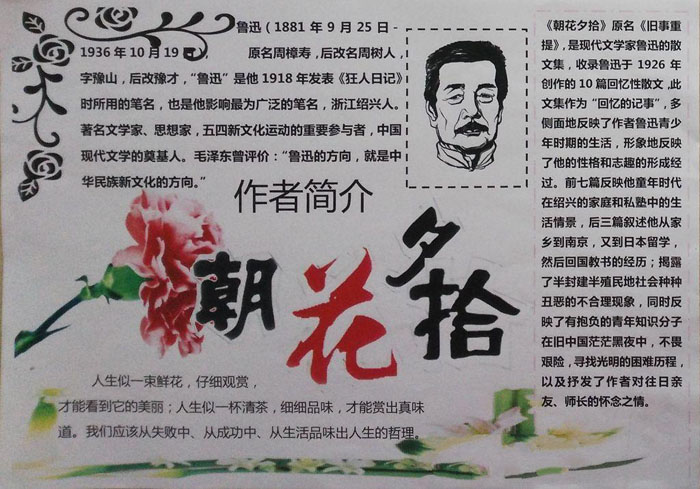 鲁迅（1881 年 9 月 25 日-
1936 年 10 月 19 日），原名周樟寿，后改名周树人，
字豫山，后改豫才，“鲁迅”是他 1918 年发表《狂人日记》
时所用的笔名，也是他影响最为广泛的笔名，浙江绍兴人。
著名文学家、思想家，五四新文化运动的重要参与者，中国
现代文学的奠基人。毛泽东曾评价：“鲁迅的方向，就是中
华民族新文化的方向。”
作者简介
朝花夕拾
人生似一束鲜花，仔细观赏，
才能看到它的美丽；人生似一杯清茶，细细品味，才能赏出真味
道。我们应该从失败中、从成功中、从生活品味出人生的哲理。
《朝花夕拾》原名《旧事重
提》，是现代文学家鲁迅的散
文集，收录鲁迅于 1926 年
创作的 10 篇回忆性散文，此
文集作为“回忆的记事”，多
侧面地反映了作者鲁迅青少
年时期的生活，形象地反映
了他的性格和志趣的形成经
过。前七篇反映他童年时代
在绍兴的家庭和私塾中的生
活情景，后三篇叙述他从家
乡到南京，又到日本留学，
然后回国教书的经历；揭露
了半封建半殖民地社会种种
丑恶的不合理现象，同时反
映了有抱负的青年知识分子
在旧中国茫茫黑夜中，不畏
艰险，寻找光明的困难历程，
以及抒发了作者对往日亲
友、师长的怀念之情。